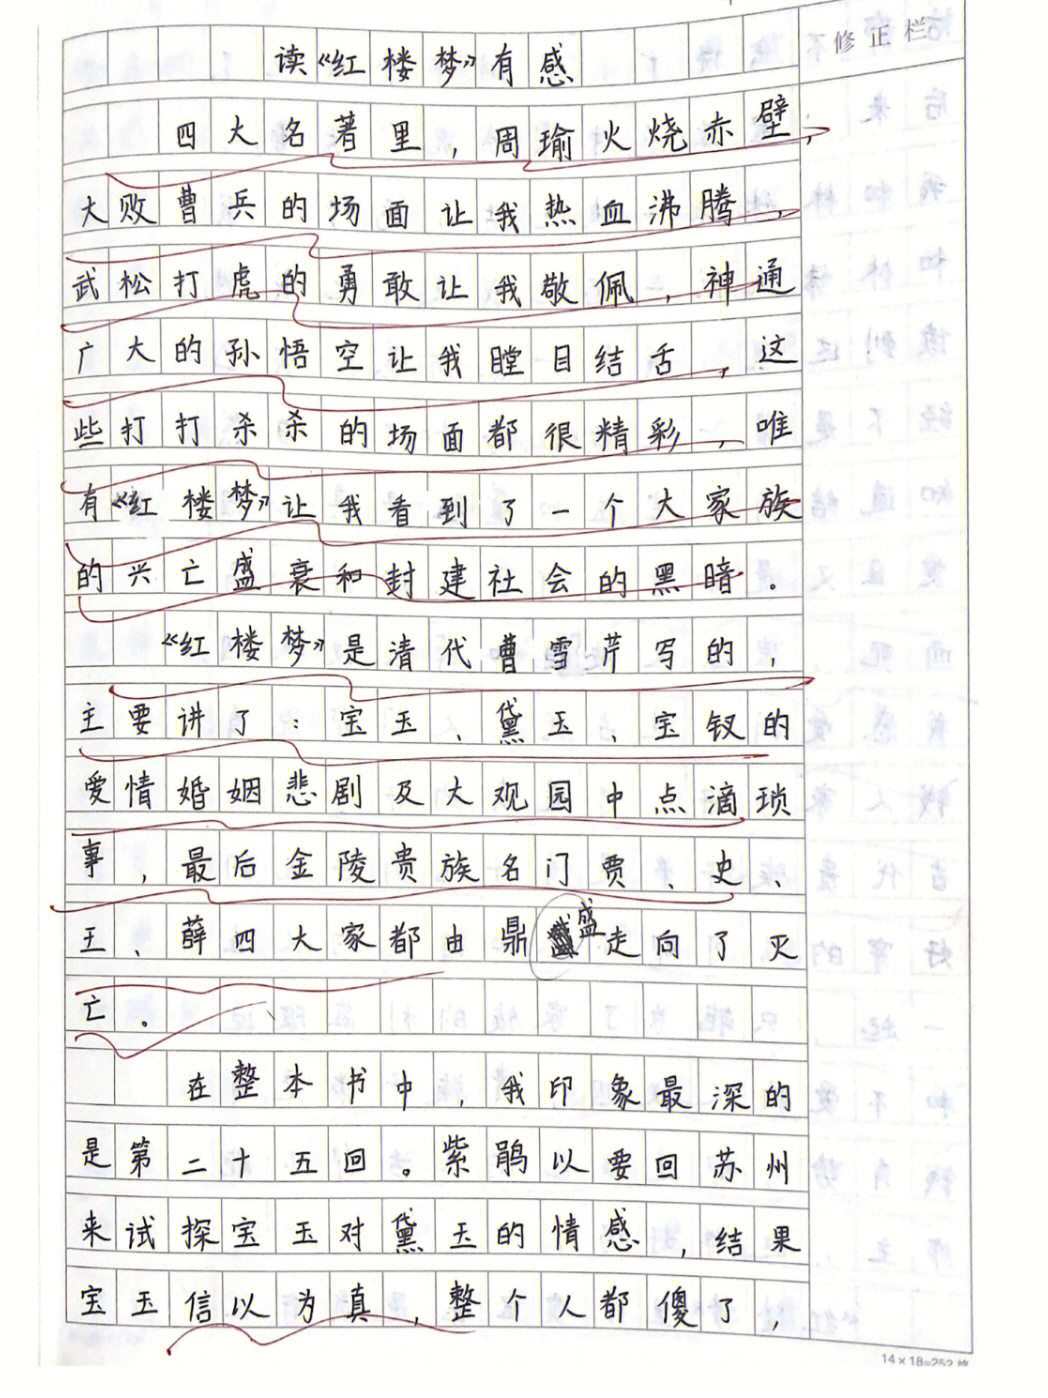 修正栏
读《红楼梦》有感
四大名著里，周瑜火烧赤壁，
大败曹兵的场面让我热血沸腾，
武松打虎的勇敢让我敬佩，神通
广大的孙悟空让我瞠目结舌，这
些打打杀杀的场面都很精彩，唯
有《红楼梦》让我看到了一个大家族
的兴亡盛衰和封建社会的黑暗。
《红楼梦》是清代曹雪芹写的，
主要讲了：宝玉、黛玉、宝钗的
爱情婚姻悲剧及大观园中点滴琐
事，最后金陵贵族名门贾、史、
王、薛四大家都由鼎盛走向了灭
亡。
在整本书中，我印象最深的
是第二十五回。紫鹃以要回苏州
来试探宝玉对黛玉的情感，结果
宝玉信以为真，整个人都傻了，
14×18=252